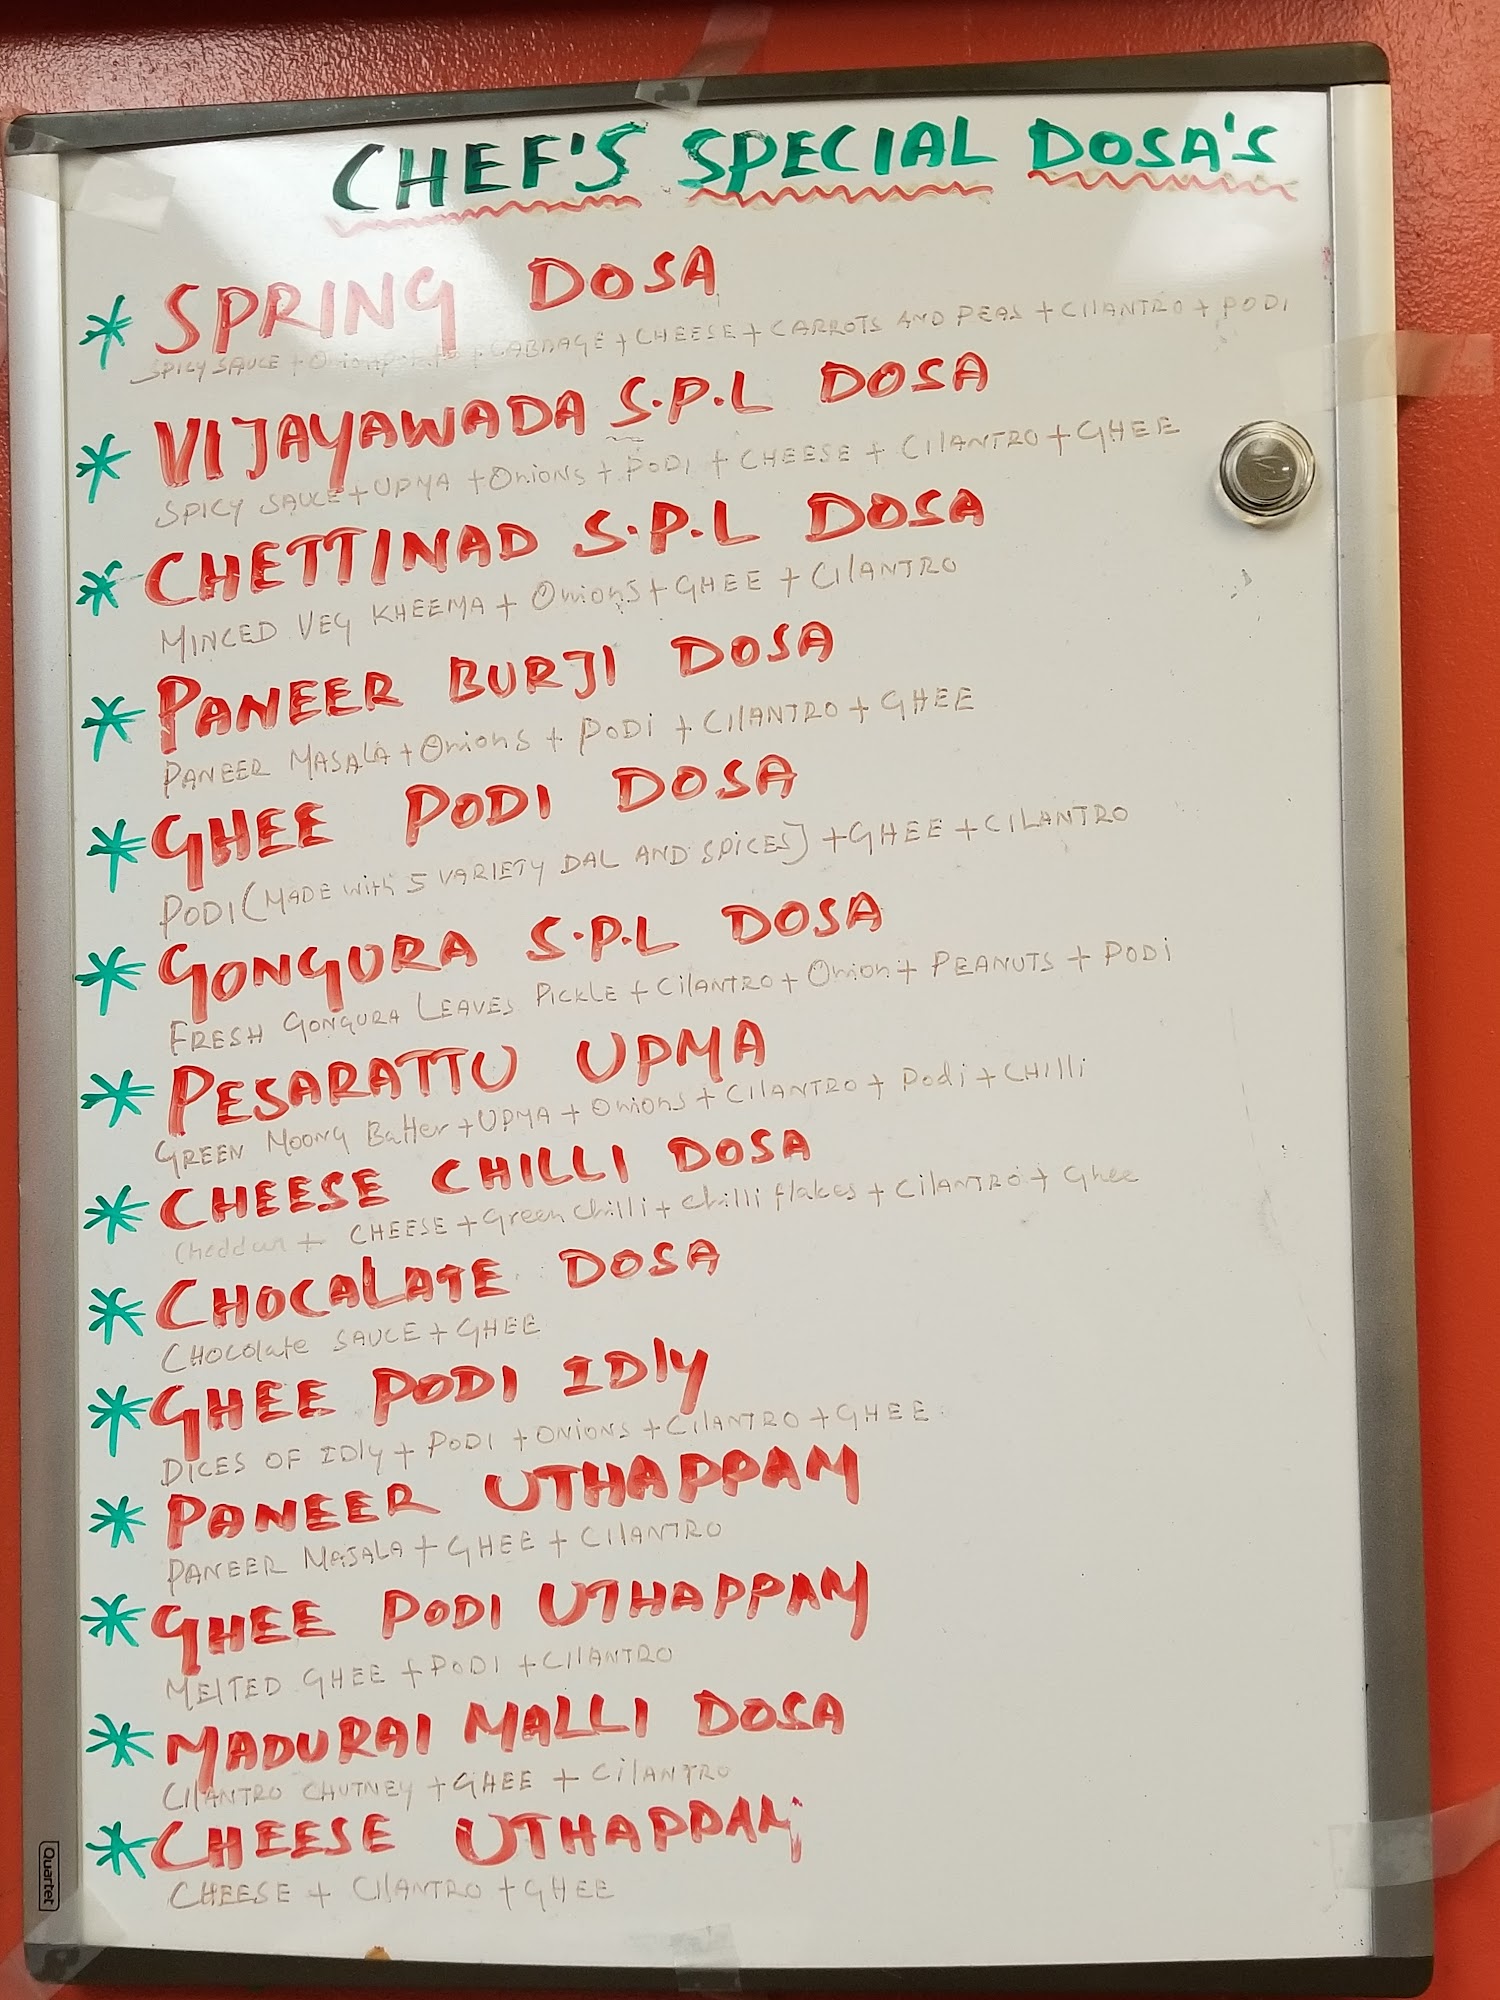 CHEF'S SPECIAL DOSA'S
* SPRING DOSA
SPICY SAUCE + CABBAGE + CHEESE + CARROTS AND PEAS + CilANTRO + PODI
* VIJAYAWADA S.P.L DOSA
SPICY SAUCE + UPMA + Onions + PODI + CHEESE + CilANTRO + GHEE
* CHETTINAD S.P.L DOSA
MINCED VEG KHEEMA + Onions + GHEE + CilANTRO
* PANEER BURJI DOSA
PANEER MASALA + Onions + PODi + CilANTRO + GHEE
* GHEE PODI DOSA
PODI (MADE with 5 VARIETY DAL AND SPICES) + GHEE + CILANTRO
* GONGURA S.P.L DOSA
FRESH GONGURA LEAVES PICKLE + CilANTRO + Onion + PEANUTS + PODi
* PESARATTU UPMA
GREEN MOONG Batter + UPMA + Onions + CilANTRO + Podi + CHilli
* CHEESE CHILLI DOSA
Cheddar + CHEESE + Green chilli + chilli flakes + CilANTRO + Ghee
* CHOCALATE DOSA
CHocolate SAUCE + GHEE
* GHEE PODI IDly
DICES OF IDly + PODI + ONIONS + CilANTRO + GHEE
* PANEER UTHAPPAM
PANEER MASALA + GHEE + CilANTRO
* GHEE PODI UTHAPPAM
MElTED GHEE + PODI + CilANTRO
* MADURAI MALLI DOSA
CilANTRO CHUTNEY + GHEE + CilANTRO
* CHEESE UTHAPPAM
CHEESE + CilANTRO + GHEE
Quartet